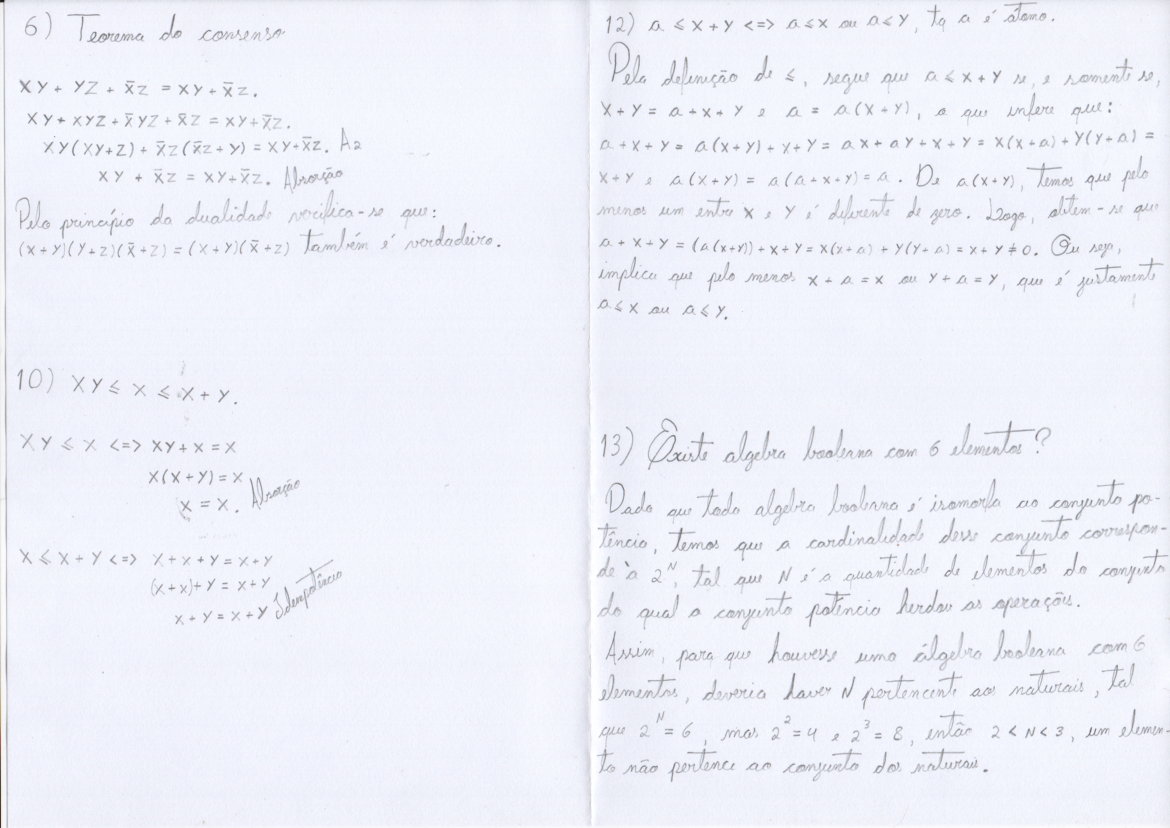 6) Teorema do consenso
XY + YZ + X̄Z = XY + X̄Z.
XY + XYZ + X̄YZ + X̄Z = XY + X̄Z.
XY(XY+Z) + X̄Z(X̄Z+Y) = XY+X̄Z. A2
XY + X̄Z = XY+X̄Z. Absorção
Pelo princípio da dualidade verifica-se que:
(X+Y)(Y+Z)(X̄+Z) = (X+Y)(X̄+Z) também é verdadeiro.
10) XY ≤ X ≤ X + Y.
XY ≤ X <=> XY + X = X
X(X+Y) = X
X = X. Absorção
X ≤ X + Y <=> X + X + Y = X + Y
(X+X)+Y = X+Y
X + Y = X + Y Idempotência
12) a ≤ X + Y <=> a ≤ X ou a ≤ Y, tq a é átomo.
Pela definição de ≤, segue que a ≤ X + Y se, e somente se,
X + Y = a + X + Y e a = a(X+Y), o que infere que:
a + X + Y = a(X+Y) + X + Y = aX + aY + X + Y = X(X+a) + Y(Y+a) =
X+Y e a(X+Y) = a(a+X+Y) = a. De a(X+Y), temos que pelo
menos um entre X e Y é diferente de zero. Logo, obtem-se que
a + X + Y = (a(X+Y)) + X + Y = X(X+a) + Y(Y+a) = X + Y ≠ 0. Ou seja,
implica que pelo menos X + a = X ou Y + a = Y, que é justamente
a ≤ X ou a ≤ Y.
13) Existe algebra booleana com 6 elementos?
Dado que toda algebra booleana é isomorfa ao conjunto po-
tência, temos que a cardinalidade desse conjunto correspon-
de à 2^N, tal que N é a quantidade de elementos do conjunto
do qual o conjunto potência herdou as operações.
Assim, para que houvesse uma álgebra booleana com 6
elementos, deveria haver N pertencente aos naturais, tal
que 2^N = 6, mas 2^2 = 4 e 2^3 = 8, então 2 < N < 3, um elemen-
to não pertence ao conjunto dos naturais.